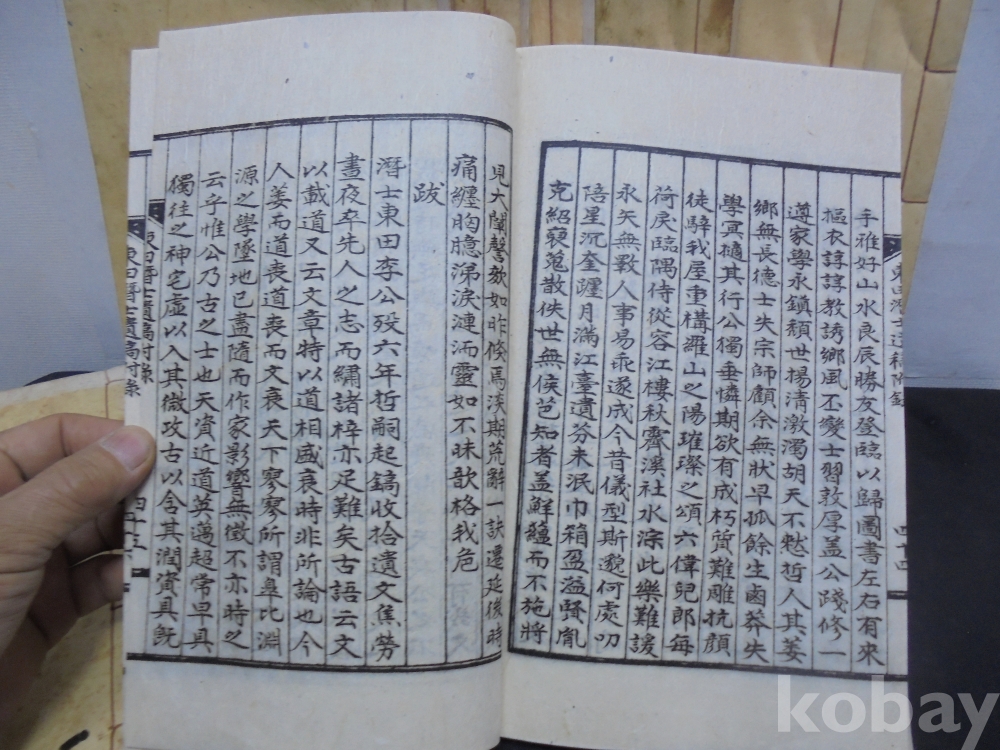 手雅好山水良辰勝友登臨以歸圖書左右有來
摳衣諄諄教誘鄉風丕變士習敦厚盖公踐修一
遵家學永鎮頹世揚淸激濁胡天不憗哲人其萎
鄉無長德士失宗師顧余無狀早孤餘生鹵莽失
學冥擿其行公獨垂憐期欲有成朽質難雕抗顔
徒騂我屋重構羅山之陽璀璨之頌六偉兒郎每
荷戾臨隅侍從容江樓秋霽溪社水淙此樂難諼
永矢無斁人事易乖遂成今昔儀型斯邈何處叨
陪星沉奎躔月滿江臺遺芬未泯巾箱盈溢賢胤
克紹裒蒐散佚世無侯芭知者盖鮮蘊而不施將
四十四
見大闡謦欬如昨倏焉淡期荒辭一訣遷延後時
痛纏胸臆涕淚漣洏靈如不昧歆格我危
跋
潛士東田李公歿六年哲嗣起鎬收拾遺文焦勞
晝夜卒先人之志而繡諸梓亦足難矣古語云文
以載道又云文章特以道相盛衰時非所論也今
人姜而道喪道喪而文衰天下寥寥所謂臯比淵
源之學墜地已盡隨而作家影響無徵不亦時之
云乎惟公乃古之士也天資近道英邁超常早具
獨往之神宅虛以入其微攻古以含其潤資具旣
東田潛士遺稿附錄
四十三
kobay